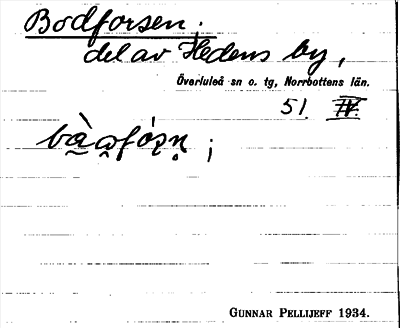 Bodforsen;
del av Hedens by,
Överluleå sn o. tg, Norrbottens län.
51. IV.
GUNNAR PELLIJEFF 1934.